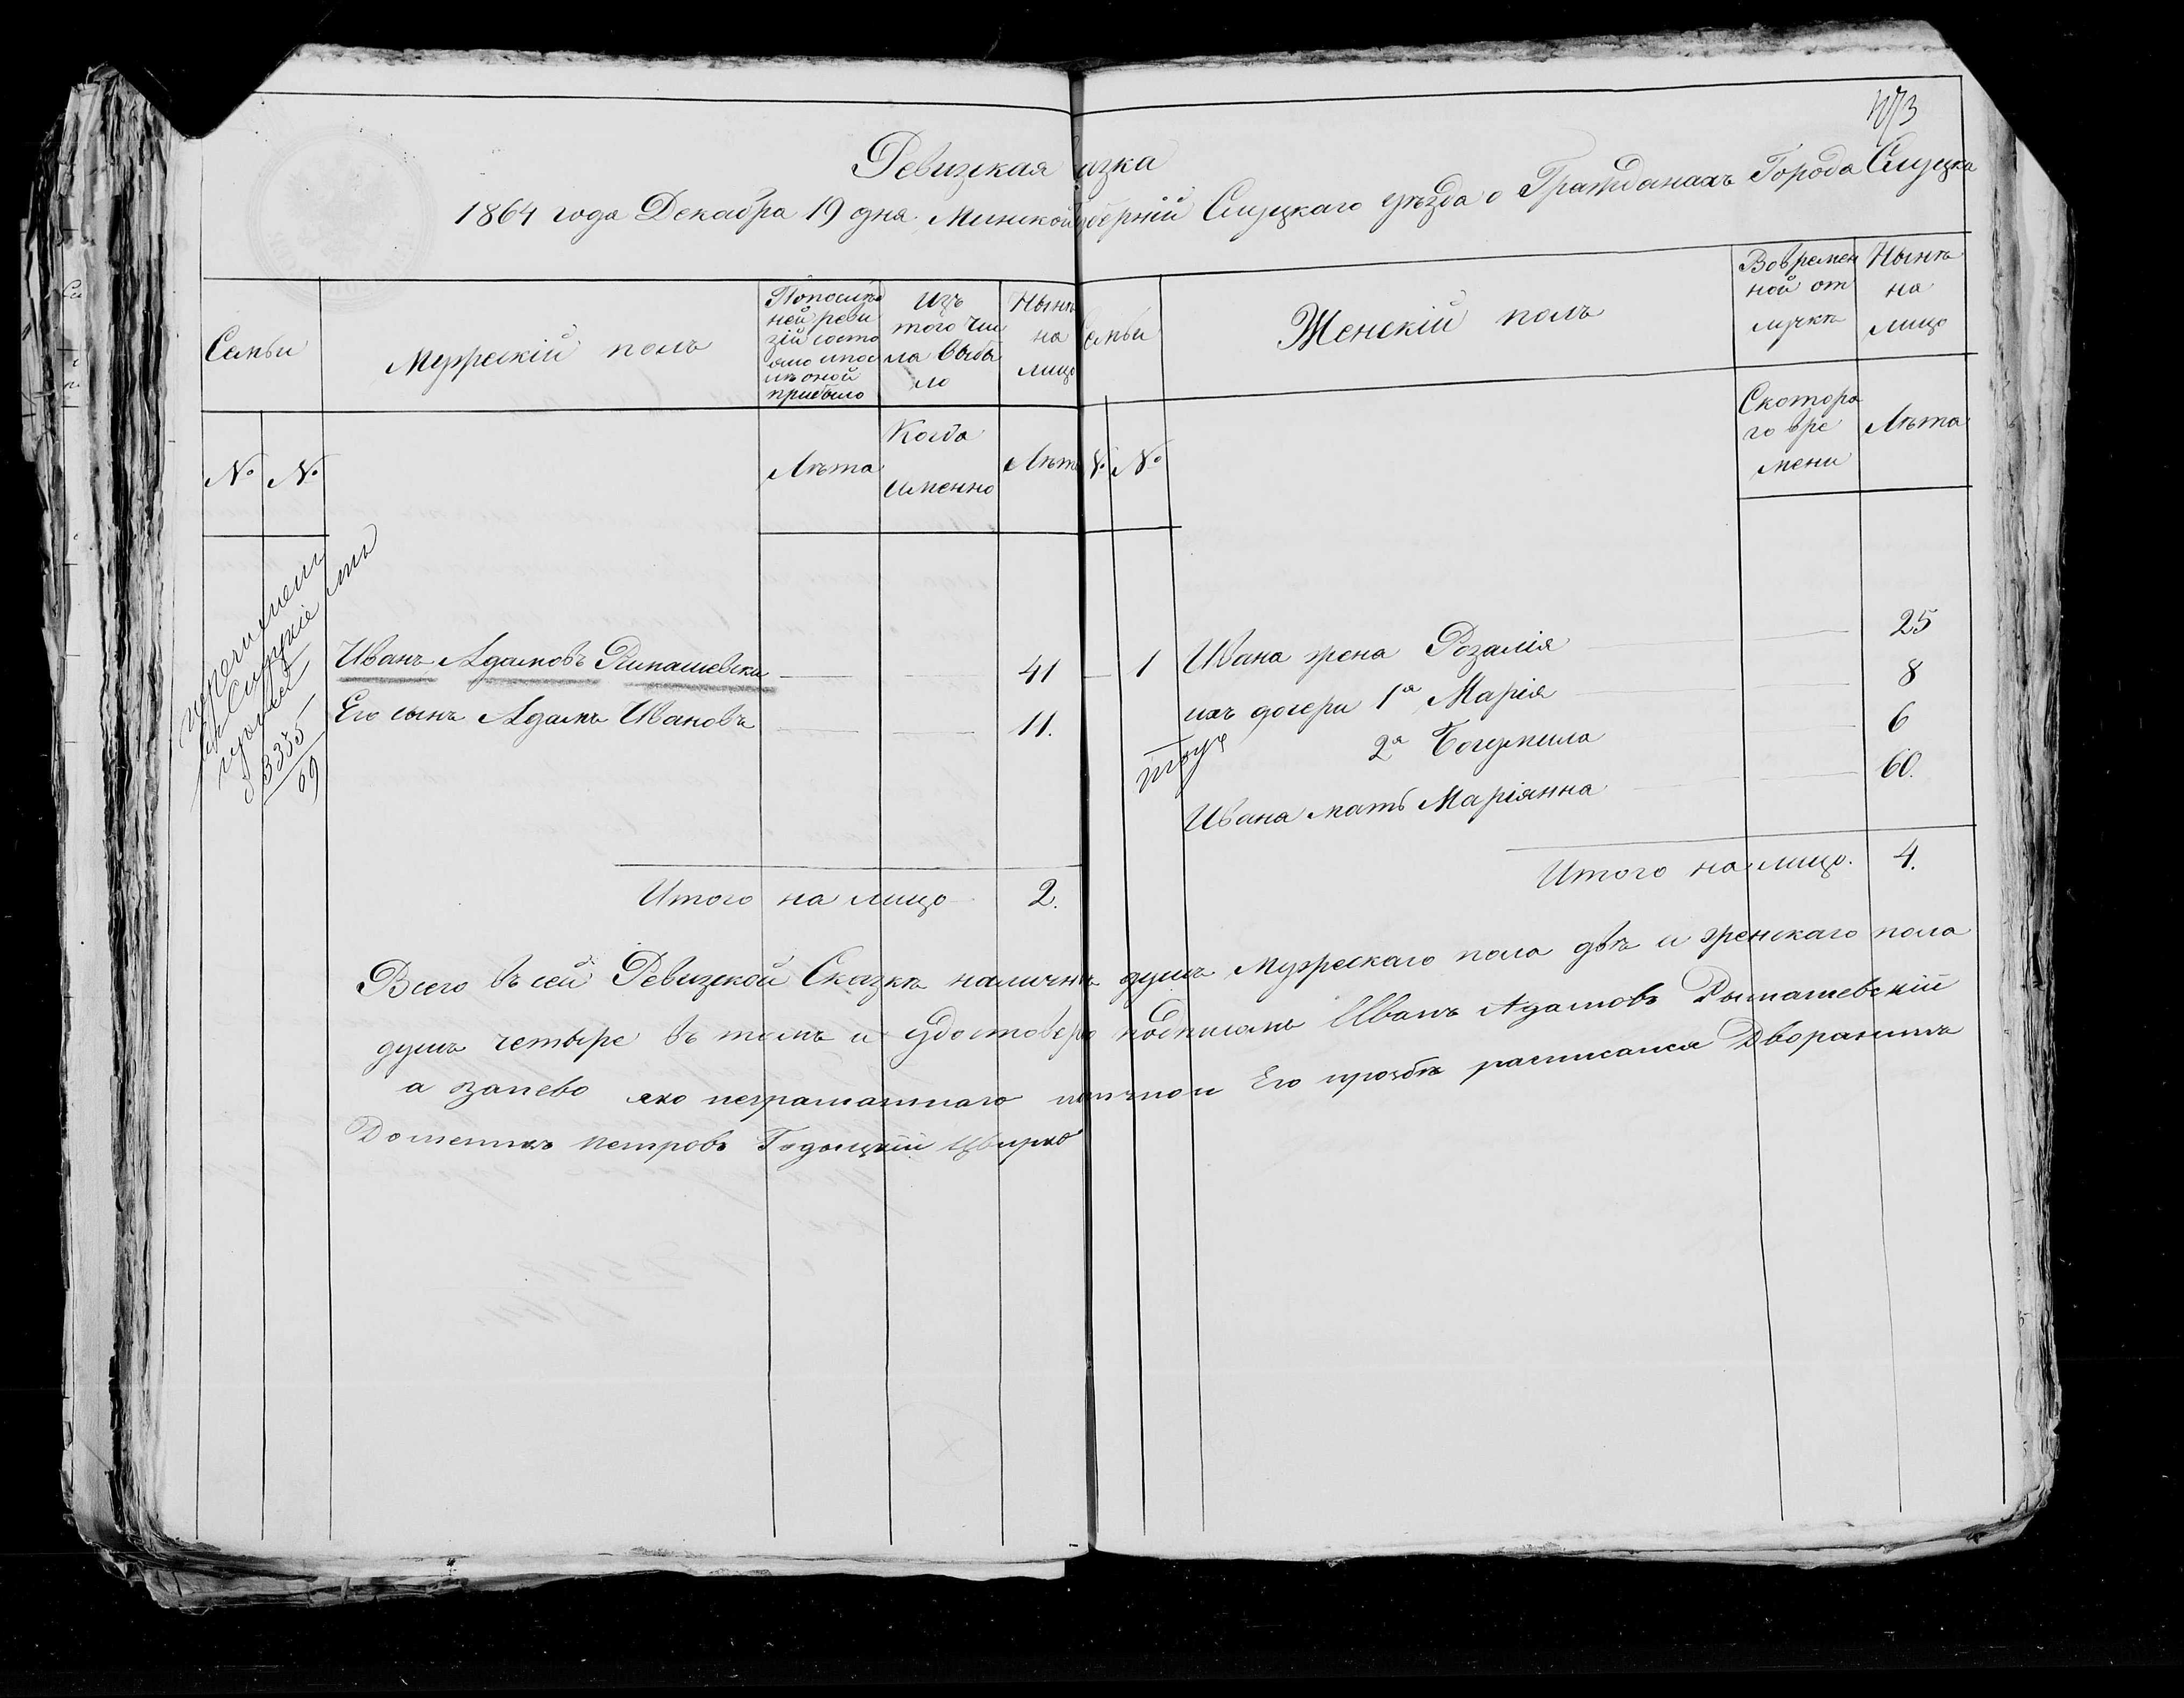 173
Ревизская Сказка
1864 года Декабря 19 дня. Минской Губерніи Слуцкаго уѣзда о Гражданахъ Города Слуцка
Семьи
Мужескій полъ
По послѣд
ней реви
зіи состо
яло и пос
лѣ оной
прибыло
Изъ
того чис
ла выбы
ло
Нынѣ
на
лицо
Семьи
Женскій полъ
Во времен
ной от
лучкѣ
Нынѣ
на
лицо
№ №
Лѣта
Когда
именно
Лѣта
№ №
Съ котора
го вре
мени
Лѣта
3355
69
Иванъ Адамовъ Рымашевскій 41
Его сынъ Адамъ Ивановъ 11.
Итого на лицо 2.
1 Ивана жена Розалія 25
ихъ дочери 1я Марія 8
2я Богумила 6
Ивана мать Маріянна 60.
Итого на лицо. 4.
Всего въ сей Ревизской Сказкѣ наличныхъ душъ Мужескаго пола двѣ и женскаго пола
душъ четыре въ томъ и удостоверяю подписомъ Иванъ Адамовъ Рымашевскій
а за нево яко неграматнаго по личной Его прозбѣ расписался Дворянинъ
Доменикъ Петровъ Годыцкій Цвирко